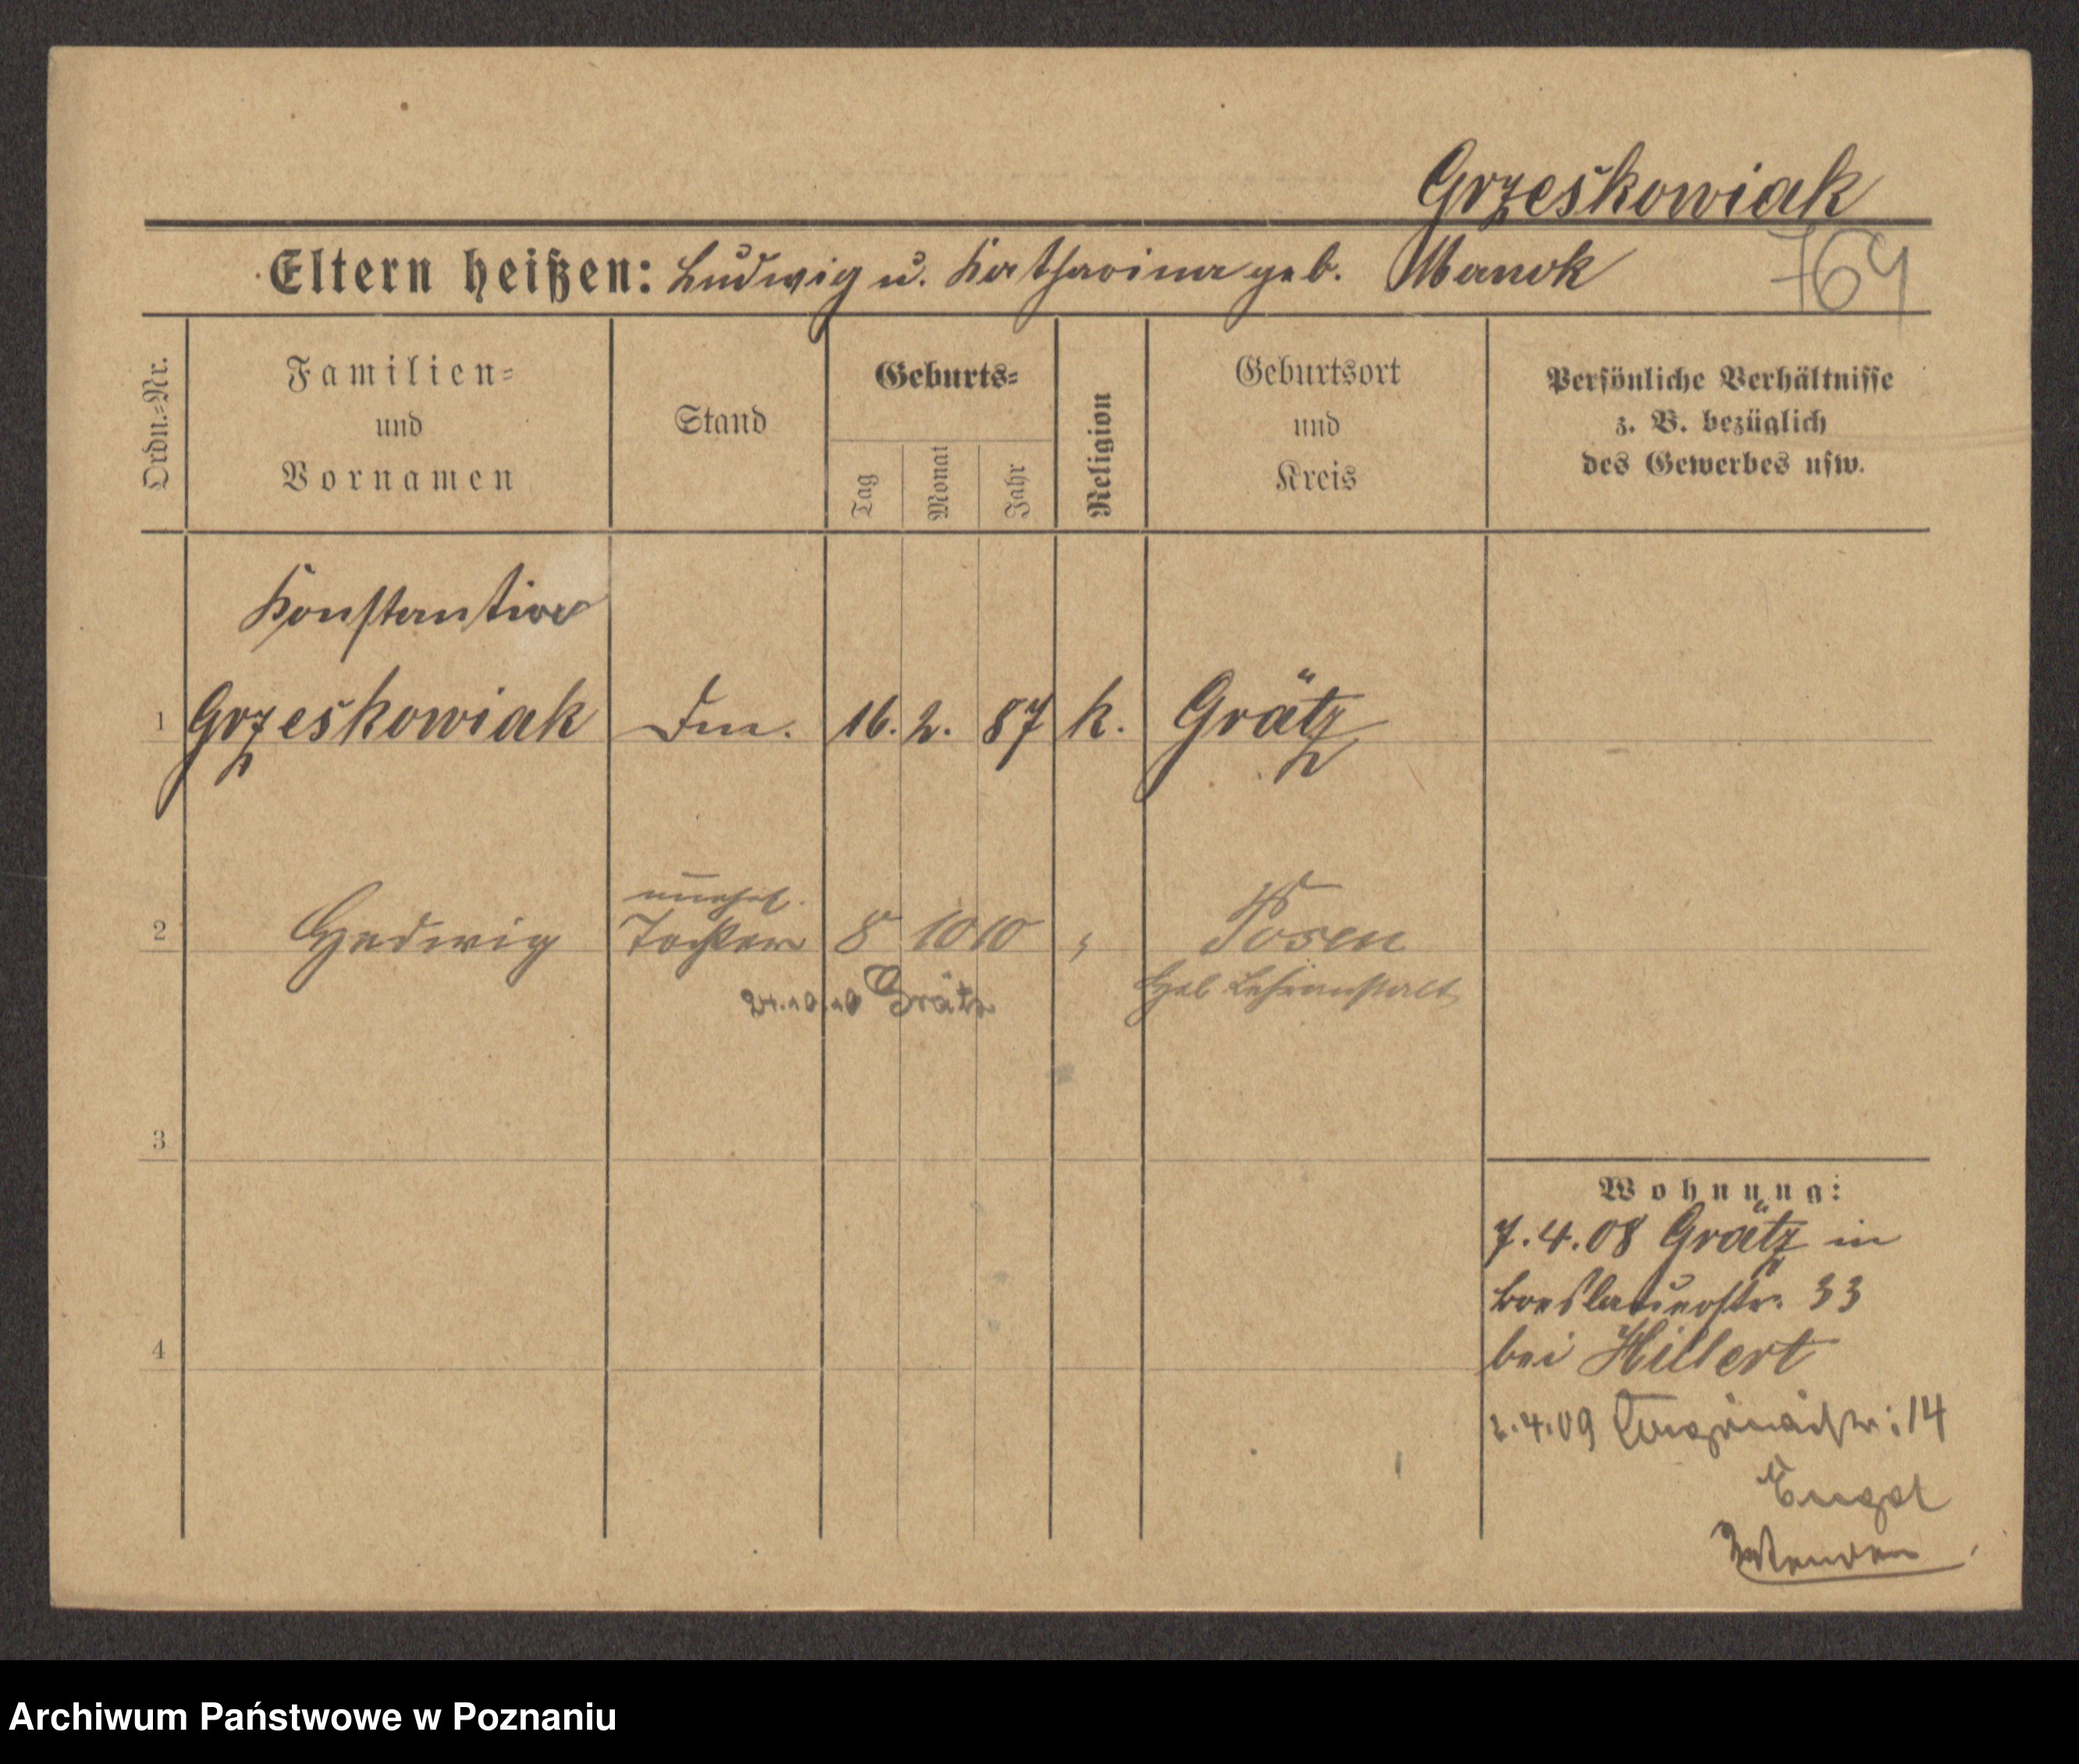 Grzeskowiak
Eltern heißen: Ludwig u. Katharina geb. Manok
764
Ordn.=Nr.
Familien=
und
Vornamen
Stand
Geburts=
Tag
Monat
Jahr
Religion
Geburtsort
und
Kreis
Persönliche Verhältnisse
z. B. bezüglich
des Gewerbes usw.
Konstantina
1 Grzeskowiak 16. 2. 87 k. Grätz
unehel.
2 Hedwig Tochter 8 10 10 " Posen
24.10.10 Grätz Heb Lehranstalt
3
4
Wohnung:
7.4.08 Grätz in
Breslauerstr. 33
bei Hillert
2.4.09 14
Engel
Wenden
Archiwum Państwowe w Poznaniu